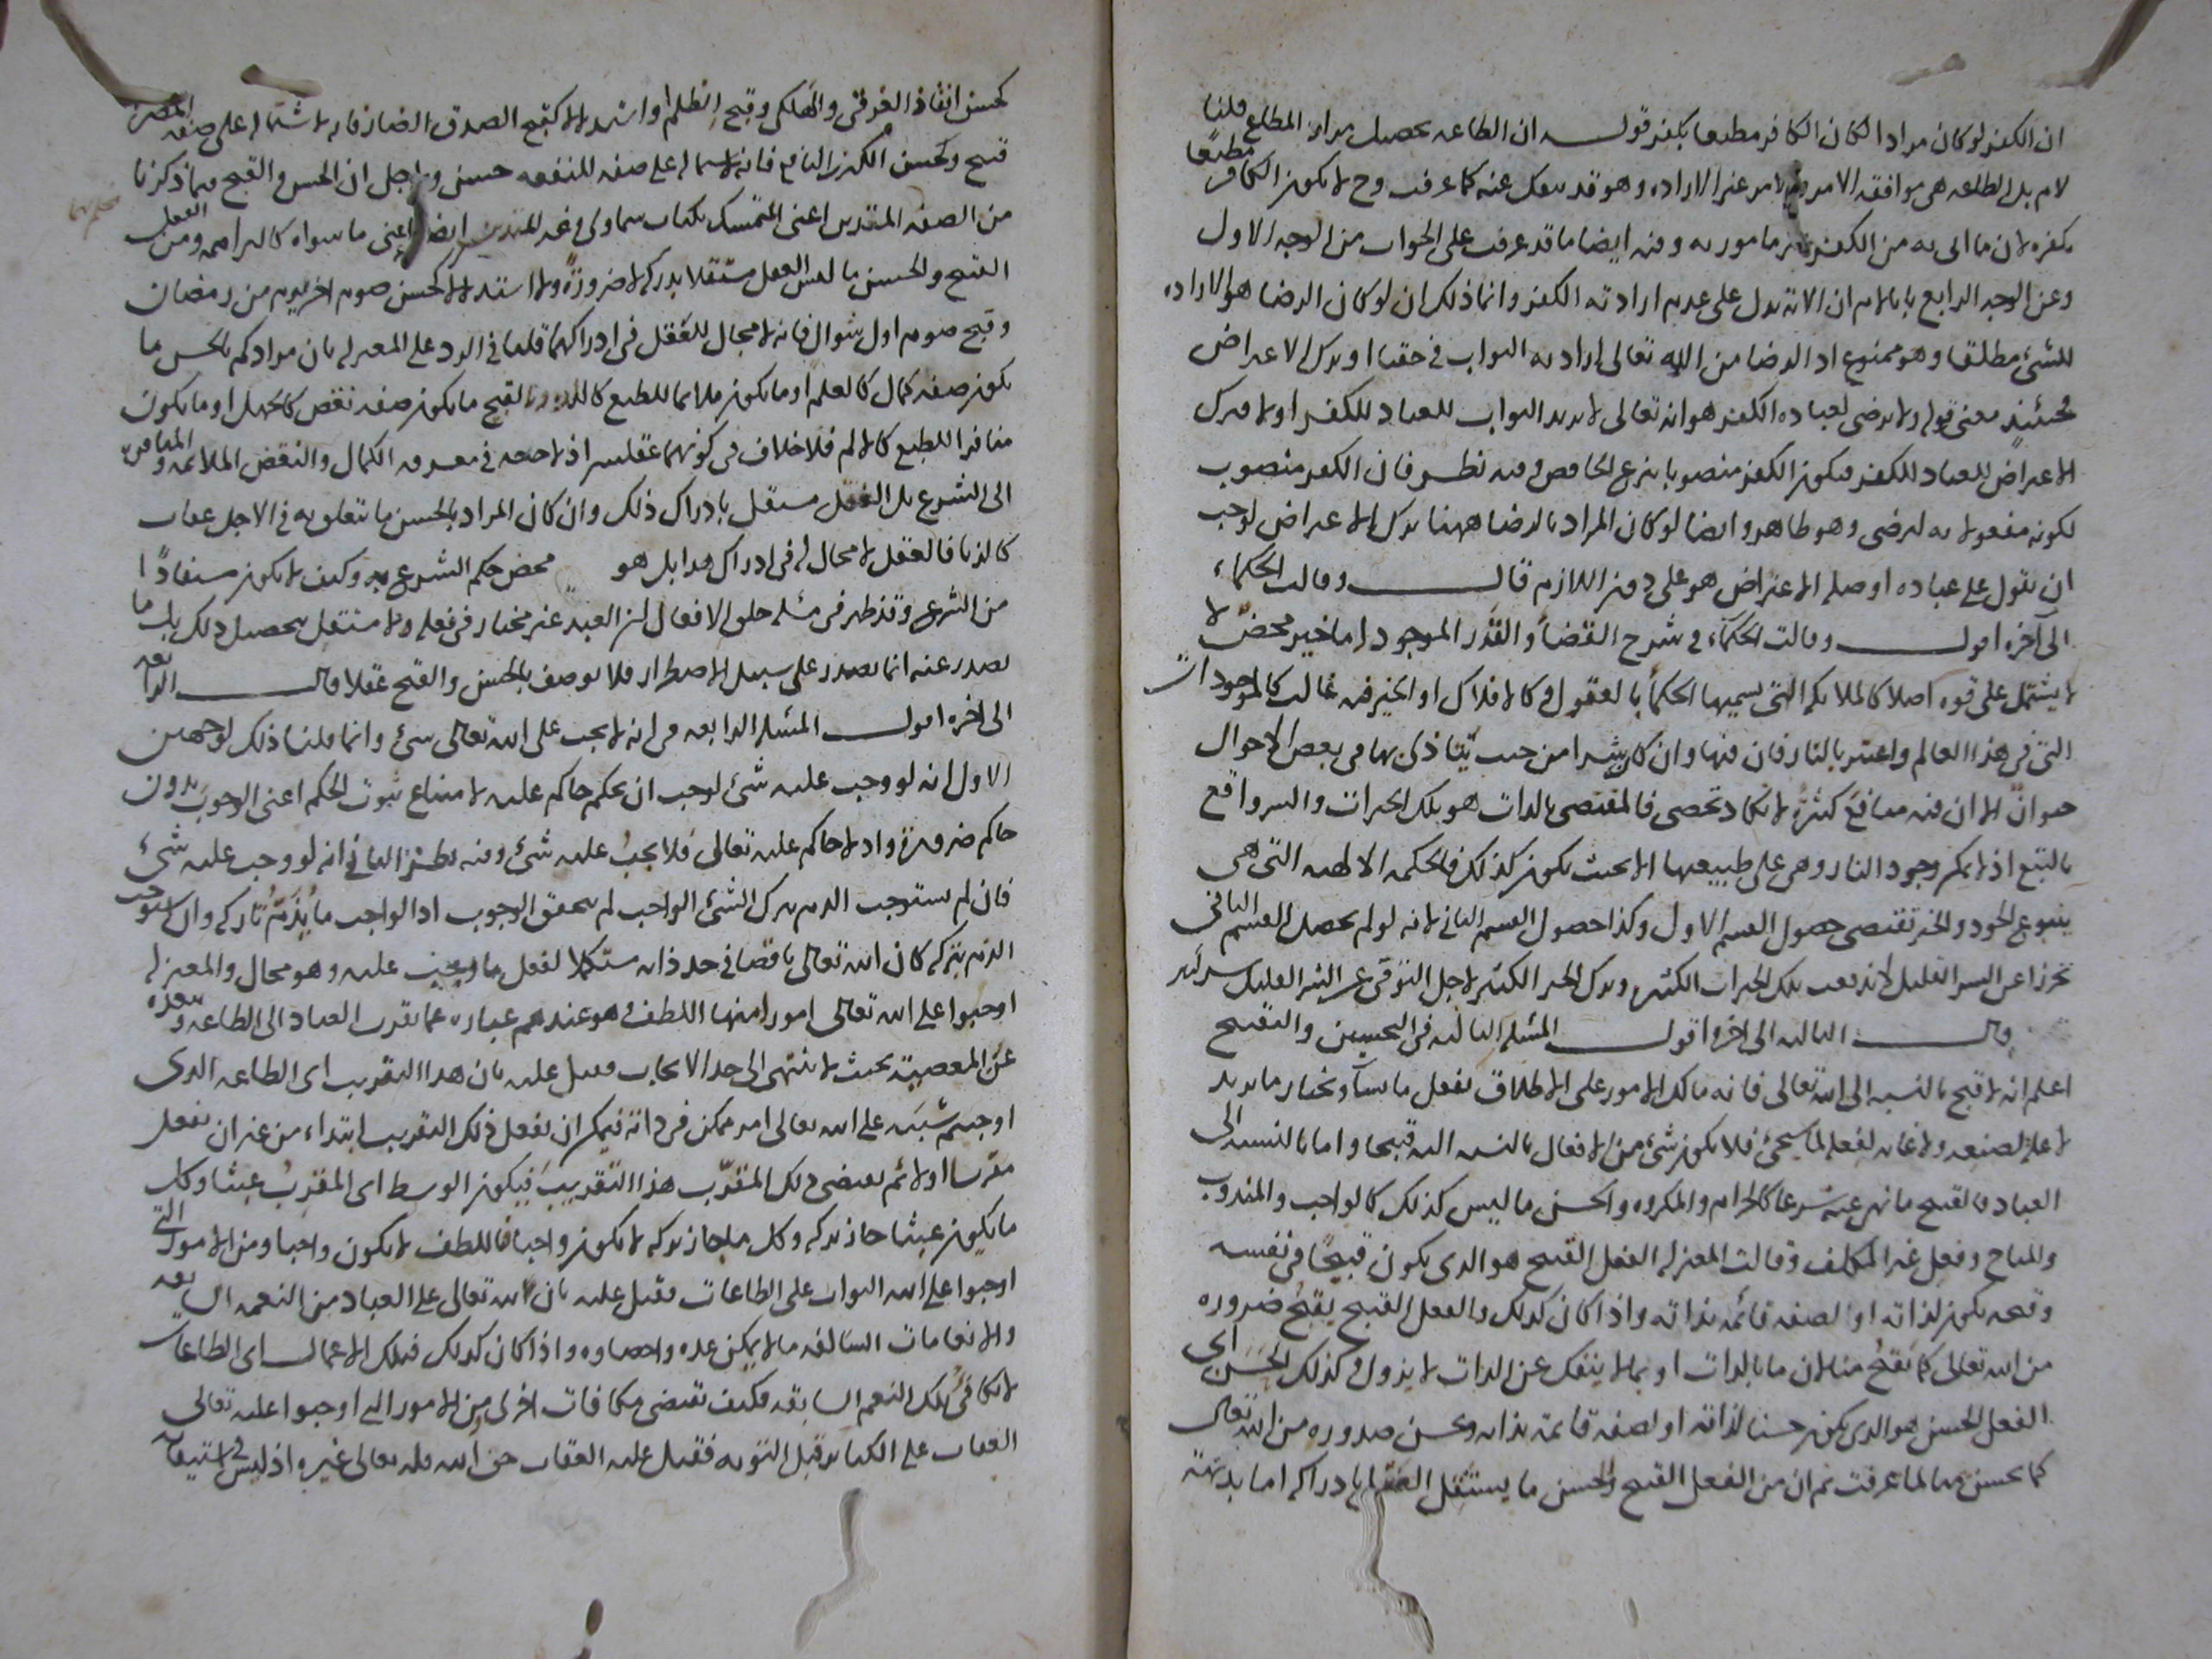 ان الكفر لو كان مرادا لكان الكافر مطيعا بكفره قوله ان الطاعه تحصيل مراد المطاع قلنا
لا نم بل الطاعه هى موافقه الامر والامر غير الاراده وهو قد ينفك عنه كما عرفت وح لا يكون الكافر مطيعا
بكفره لان ما اتى به من الكفر غير مامور به وفيه ايضا ما قد عرفت على الجواب من الوجه الاول
وعن الوجه الرابع بانا لانم ان الاية تدل على عدم ارادته الكفر وانما ذلك ان لو كان الرضا هو الاراده
للشئ مطلقا وهو ممنوع اذ الرضا من الله تعالى اراده الثواب فى حقنا او ترك الاعتراض
فحينئذ معنى قوله ولا يرضى لعباده الكفر هو انه تعالى لا يريد الثواب للعباد للكفر او لا يترك
الاعتراض للعباد للكفر فيكون الكفر منصوبا بنزع الخافض وفيه نظر فان الكفر منصوب
لكونه مفعولا به ليرضى وهو ظاهر وايضا لو كان المراد بالرضا ههنا ترك الاعتراض لوجب
ان يقول على عباده اذ صلة الاعتراض هو على دون اللام قال وقالت الحكماء
الى آخره اقول وقالت الحكماء فى شرح القضاء والقدر الموجود اما خير محض لا
لا يشتمل على قوه اصلا كالملائكه التى يسميها الحكماء بالعقول وكالافلاك او الخير فيه غالب كالموجودات
التى فى هذا العالم واعتبر بالنار فان فيها وان كان شرا من حيث يتاذى بها فى بعض الاحوال
حيوان الا ان فيه منافع كثيرة لا تكاد تحصى فالمقتضى بالذات هو تلك الخيرات والشر واقع
بالتبع اذ لا يمكن وجود النار وهى على طبيعتها الا بحيث يكون كذلك فالحكمه الالهيه التى هى
ينبوع الجود والخير تقتضى حصول القسم الاول وكذا حصول القسم الثانى لانه لو لم يحصل القسم الثانى
تحرزا عن الشر القليل لانه يفوت تلك الخيرات الكثيره وترك الخير الكثير لاجل التوقى عن الشر القليل شر كثير
قال الثالثه الى آخره اقول المسئلة الثالثه فى التحسين والتقبيح
اعلم انه لا قبيح بالنسبه الى الله تعالى فانه مالك الامور على الاطلاق يفعل ما يشاء ويختار ما يريد
لا علة لصنعه ولا غايه لفعله لما سيجئ فلا يكون شئ من الافعال بالنسبه اليه قبيحا واما بالنسبه الى
العباد فالقبيح ما نهى عنه شرعا كالحرام والمكروه والحسن ما ليس كذلك كالواجب والمندوب
والمباح وفعل غير المكلف وقالت المعتزله الفعل القبيح هو الذى يكون قبيحا فى نفسه
وقبحه يكون لذاته او لصفه قائمه بذاته واذا كان كذلك فالفعل القبيح يقبح ضروره
من الله تعالى كما يقبح منا لان ما بالذات او بما لا ينفك عن الذات لا يزول وكذلك الحسن اى
الفعل الحسن هو الذى يكون حسنا لذاته او لصفه قائمه بذاته ويحسن صدوره من الله تعالى
كما يحسن منا لما عرفت ثم ان من الفعل القبيح والحسن ما يستقل العقل بادراكه اما بديهة
كحسن انقاذ الغرقى والهلكى وقبح الظلم او استدلالا كقبح الصدق الضار فانه لاشتماله على صفه المضره
قبيح وكحسن الكذب النافع فانه لاشتماله على صفه للمنفعه حسن ولاجل ان الحسن والقبح فيما ذكرنا
من الصفه المتدين اعنى المتمسك بكتاب سماوى وغير المتدين ايضا اعنى ما سواه كالبراهمه ومن الفعل
القبيح والحسن ما ليس العقل مستقلا بدركه لا ضرورة ولا استدلالا كحسن صوم اخر يوم من رمضان
وقبح صوم اول شوال فانه لا مجال للعقل فى ادراكهما قلنا فى الرد على المعتزله بان مرادكم بالحسن ما
يكون صفه كمال كالعلم او ما يكون ملائما للطبع كاللذه وبالقبيح ما يكون صفه نقص كالجهل او ما يكون
منافرا للطبع كالالم فلا خلاف فى كونهما عقليين اذ لا حاجه فى معرفه الكمال والنقص الملائمه والمنافره
الى الشرع بل العقل مستقل بادراك ذلك وان كان المراد بالحسن ما يتعلق به فى الاجل عقاب
كالزنا فالعقل لا مجال له فى ادراك هذا بل هو محض حكم الشرع به وكيف لا يكون مستفادا
من الشرع وقد ظهر فى مسئله خلق الافعال ان العبد غير مختار فى فعله ولا مستقل بتحصيل ذلك بل ما
يصدر عنه انما يصدر على سبيل الاضطرار فلا يوصف بالحسن والقبح عقلا قال الرابعه
الى اخره اقول المسئله الرابعه فى انه لا يجب على الله تعالى شئ وانما قلنا ذلك لوجهين
الاول انه لو وجب عليه شئ لوجب ان يحكم حاكم عليه لامتناع ثبوت الحكم اعنى الوجوب بدون
حاكم ضرورة واذ لا حاكم عليه تعالى فلا يجب عليه شئ وفيه نظر الثانى انه لو وجب عليه شئ
فان لم يستوجب الذم بترك الشئ الواجب لم يتحقق الوجوب اذ الواجب ما يذم تاركه وان استوجب
الذم بتركه كان الله تعالى ناقصا فى حد ذاته مستكملا لفعل ما وجب عليه وهو محال والمعتزله
اوجبوا على الله تعالى امورا منها اللطف وهو عندهم عبارة عما يقرب العباد الى الطاعه ويبعده
عن المعصية بحيث لا ينتهى الى حد الالجاء فقيل عليه بان هذا التقريب اى الطاعه الذى
اوجبتم شيئا على الله تعالى امر ممكن فى ذاته فيمكن ان يفعل ذلك التقريب ابتداء من غير ان يفعل
مقربا اولا ثم يقتضى ذلك المقرب هذا التقريب فيكون الوسط اى المقرب عبثا وكل
ما يكون عبثا جاز تركه وكل ما جاز تركه لا يكون واجبا فاللطف لا يكون واجبا ومن الامور التى
اوجبوا على الله الثواب على الطاعات فقيل عليه بان لله تعالى على العباد من النعمه السابقه
والانعامات السالفه ما لا يمكن عده واحصاوه واذا كان كذلك فتلك الاعمال اى الطاعات
لا تكافئ تلك النعم السابقه فكيف تقتضى مكافات اخرى ومن الامور التى اوجبوا عليه تعالى
العقاب على الكبائر قبل التوبه فقيل عليه العقاب حق الله فله تعالى غيره اذ ليس فى استيفائه